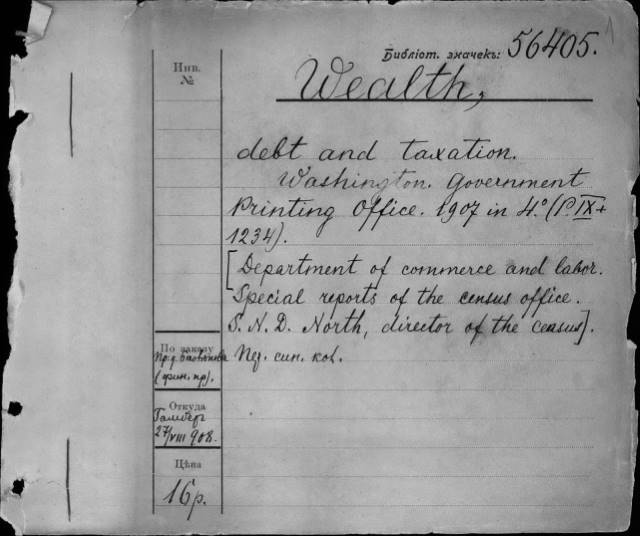 1
Библіот. значекъ: 56405.
Инв.
№
Wealth,
debt and taxation.
Washington. Government
Printing Office. 1907 in 4.° (P. IX+
1234).
[Department of commerce and labor.
Special reports of the census office.
S. N. D. North, director of the census].
По заказу
(фин. пр).
Откуда
27/VIII 908.
Цѣна
16 р.